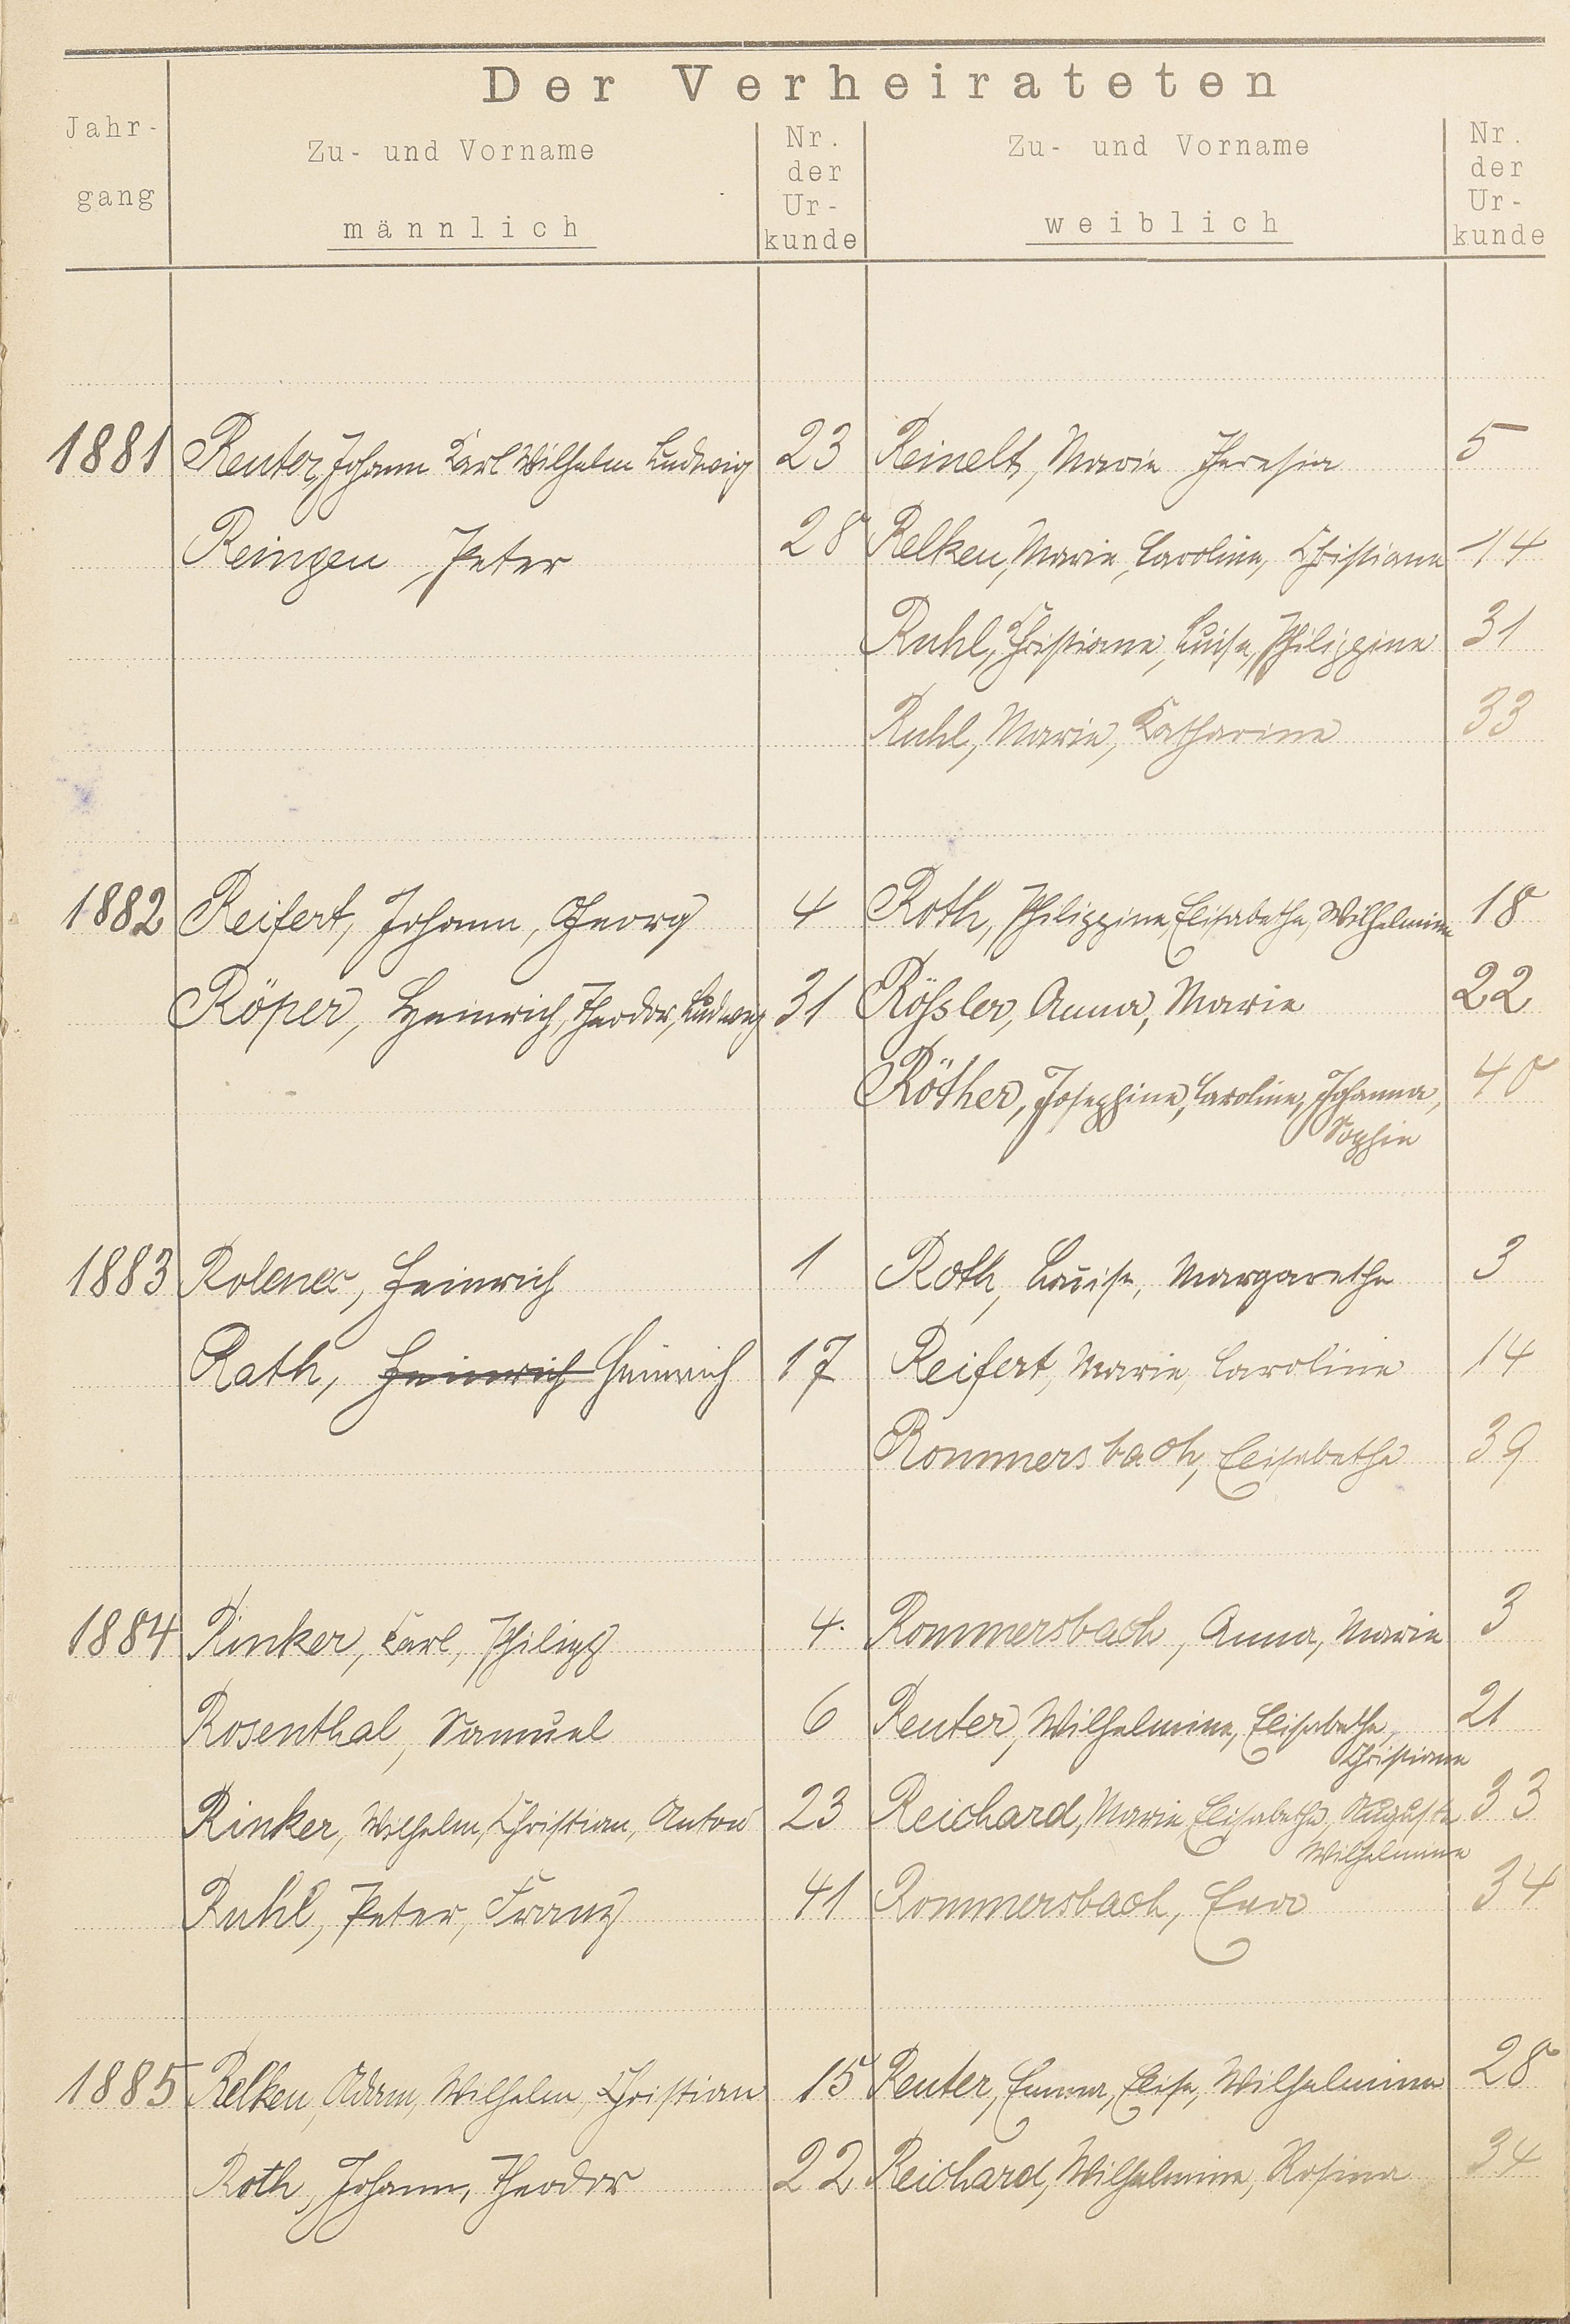 Der Verheirateten
Jahr-
gang
Zu- und Vorname
männlich
Nr.
der
Ur-
kunde
Zu- und Vorname
weiblich
Nr.
der
Ur-
kunde
1881 Reuter, Johann Karl Wilhelm Ludwig 23 Reinelt, Marie Theresia 5
Reingen, Peter 28 Relken, Marie, Caroline, Christiane 14
Ruhl, Christiane, Luise, Philippine 31
Ruhl, Marie, Katharine 33
1882 Reifert, Johann, Georg 4 Roth, Philippine, Elisabethe, Wilhelmine 18
Röper, Heinrich, Theodor, Ludwig 31 Rößler, Anna, Marie 22
Röther, Josephine, Caroline, Johanna, 40
Sophie
1883 Rolenec, Heinrich 1 Roth, Louise, Margarethe 3
Rath, Heinrich Heinrich 17 Reifert, Marie, Caroline 14
Rommersbach, Elisabethe 39
1884 Rinker, Karl, Philipp 4. Rommersbach, Anna, Marie 3
Rosenthal, Samuel 6 Reuter, Wilhelmine, Elisabethe, 21
Christiane
Rinker, Wilhelm, Christian, Anton 23 Reichard, Marie Elisabethe, Auguste 33
Wilhelmine
Ruhl, Peter, Franz 41 Rommersbach, Eva 34
1885 Relken, Adam, Wilhelm, Christian 15 Reuter, Emma, Elise, Wilhelmine 28
Roth, Johann, Theodor 22 Reichard, Wilhelmine, Rosina 34